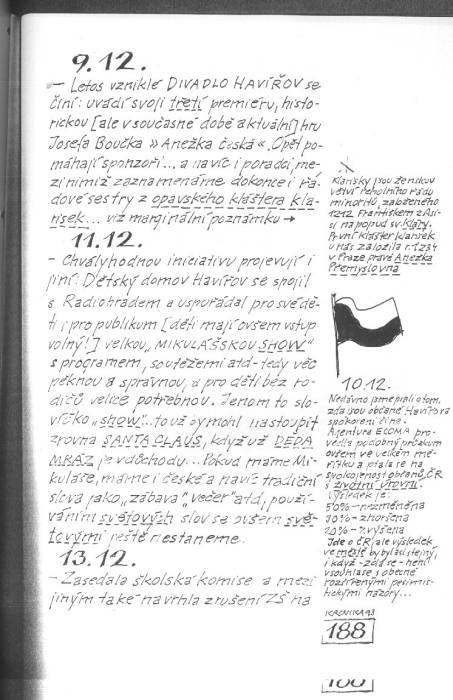 9.12.
– Letos vzniklé DIVADLO HAVÍŘOV se
činí: uvádí svoji třetí premiéru, histo-
rickou [ale v současné době aktuální] hru
Josefa Boučka »Anežka česká«. Opět po-
máhají sponzoři... a navíc i poradci, me-
zi nimiž zaznamenáme dokonce i řá-
dové sestry z opavského kláštera kla-
risek... viz marginální poznámku →
11.12.
– Chvályhodnou iniciativu projevují i
jiní: Dětský domov Havířov se spojil
s Radiohradem a uspořádal pro své dě-
ti i pro publikum [děti mají ovšem vstup
volný!] velkou „MIKULÁŠSKOU SHOW“
s programem, soutěžemi atd – tedy věc
pěknou a správnou, a pro děti bez ro-
dičů velice potřebnou. Jenom to slo-
víčko „show“... to už by mohl nastoupit
zrovna SANTA CLAUS, když už DĚDA
MRÁZ je v důchodu... Pokud máme Mi-
kuláše, máme i české a navíc tradiční
slova jako „zábava“ „večer“ atd, použí-
váním světových slov se ovšem svě-
tovými ještě nestaneme.
13.12.
– Zasedala školská komise a mezi
jiným také navrhla zrušení ZŠ na
Klarisky jsou ženskou
větví řeholního řádu
minoritů, založeného
1212 Františkem z Asi-
si na popud sv. Kláry.
První klášter klarisek
u nás založila r. 1234
v Praze právě Anežka
Přemyslovna
10.12.
Nedávno jsme psali o tom,
zda jsou občané Havířova
spokojeni či ne.
Agentura ECOMA pro-
vedla podobný průzkum
ovšem ve velkém mě-
řítku a ptala se na
spokojenost občanů ČR
s životní úrovní.
Výsledek je:
50% – nezměněna
30% – zhoršena
20% – zvýšena
Jde o ČR, ale výsledek
ve městě by byl asi stejný,
i když – zdá se – není
v souhlase s obecně
rozšířenými pesimis-
tickými názory...
KRONIKA 93
188